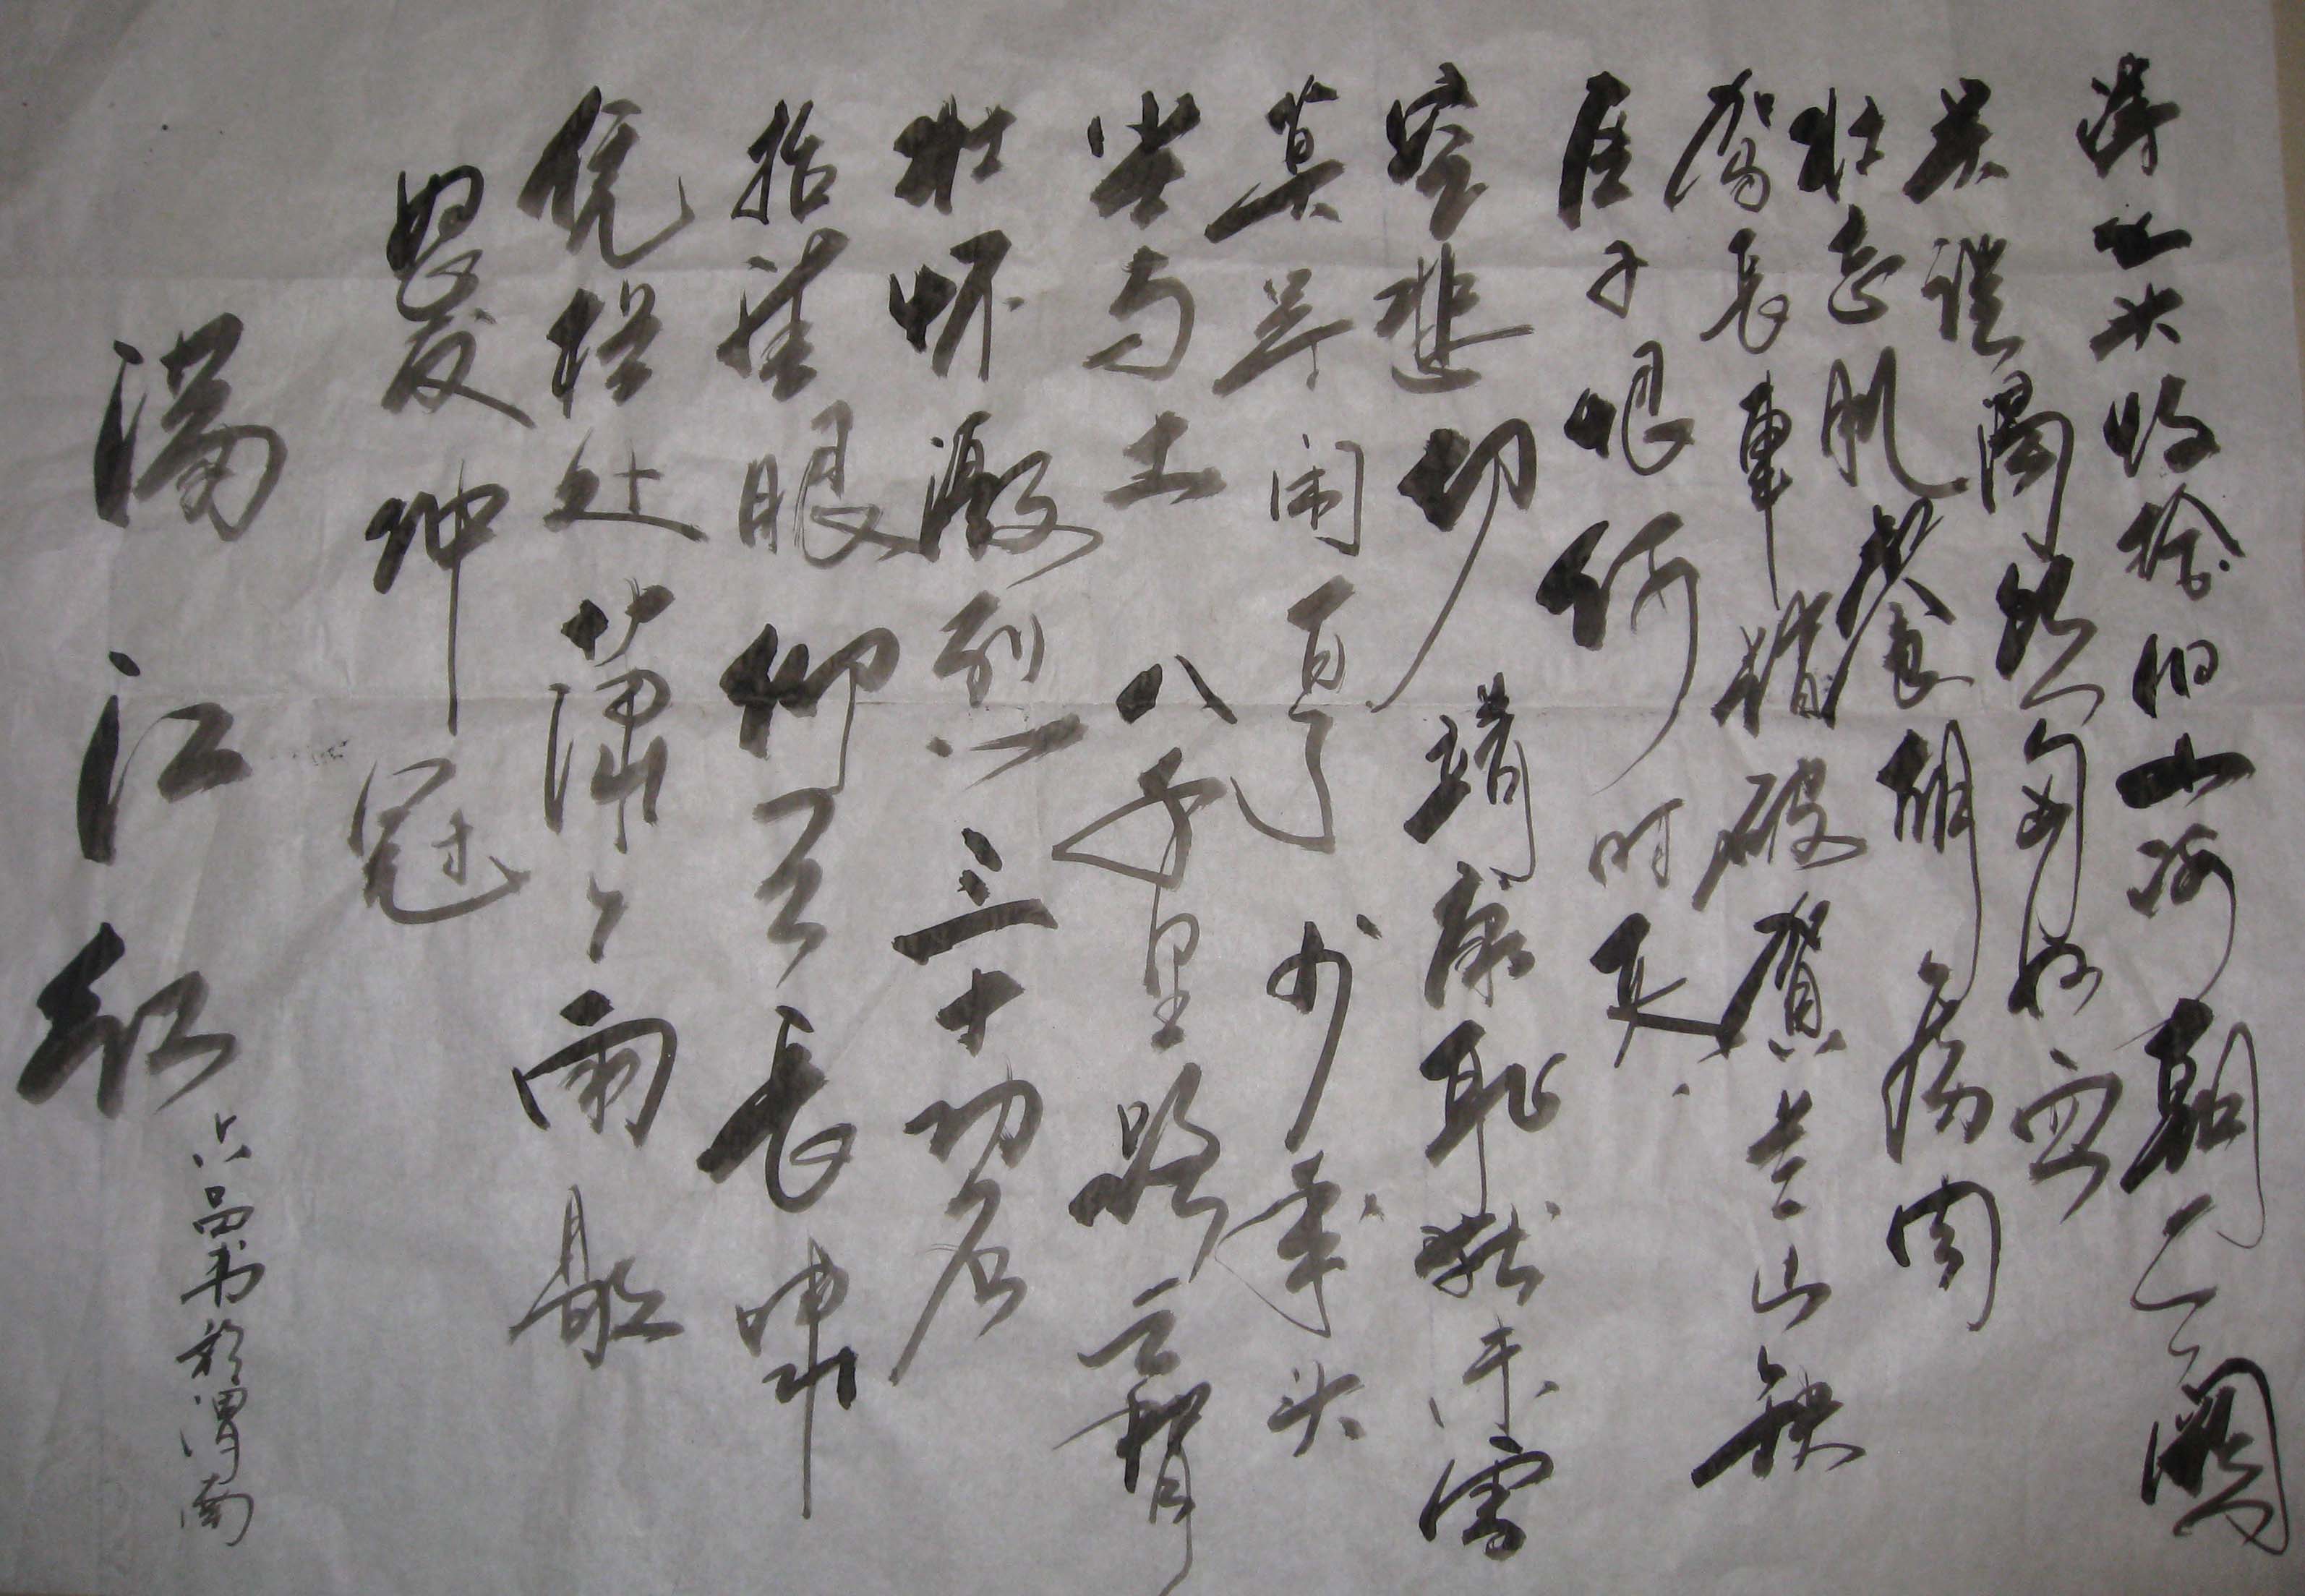 满江红
书於渭南
怒发冲冠
凭栏处潇々雨歇
抬望眼仰天长啸
壮怀激烈三十功名
尘与土八千里路云和月
莫等闲白了少年头
空悲切靖康耻犹未雪
臣子恨何时灭
驾长車踏破贺兰山缺
壮志肌餐胡虏肉
笑谈渴饮匈奴血
待从头收拾旧山河朝天阙